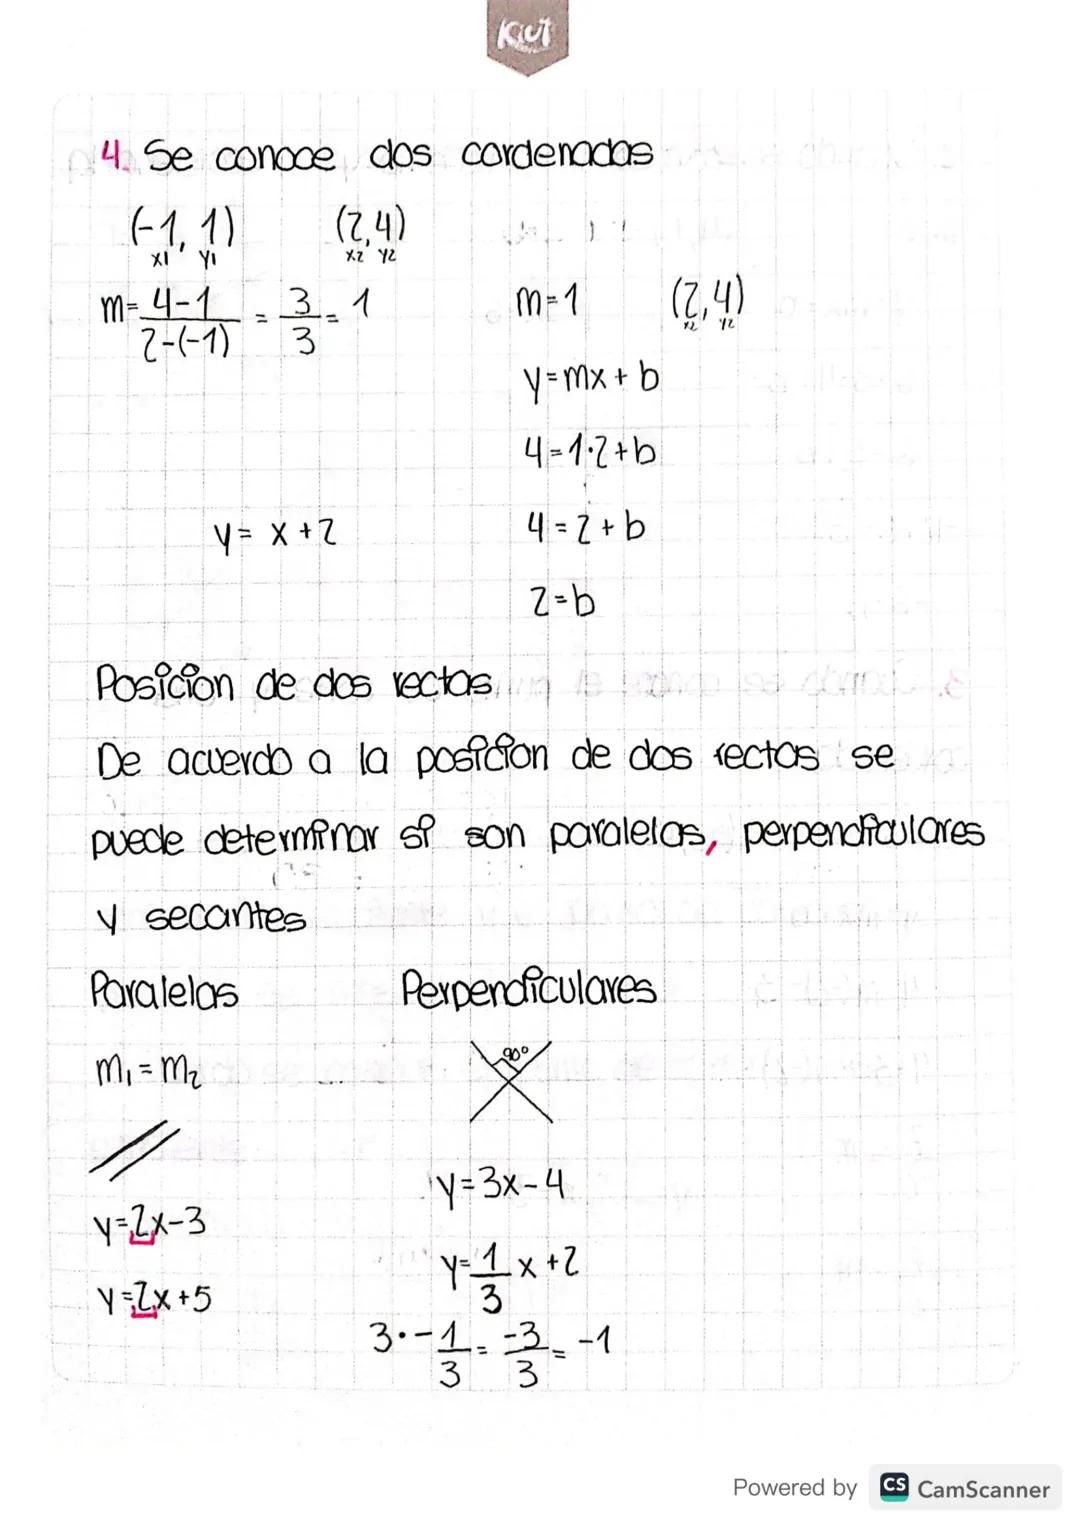 Kiut
4. Se conoce dos cordenadas
(-1, 1) (2,4)
x1 y1 x2 y2
m= 4-1 / 2-(-1) = 3/3 = 1
m=1 (2,4)
x2 y2
y=mx+b
4=1·2+b
y= x+2
4=2+b
2=b
Posicion de dos rectas
De acuerdo a la posicion de dos rectas se
puede determinar si son paralelas, perpendiculares
y secantes
Paralelas Perpendiculares
m₁=m₂
90°
y=3x-4
y=2x-3
y=1/3 x+2
y=2x+5
3·-1/3 = -3/3 = -1
Powered by CS CamScanner